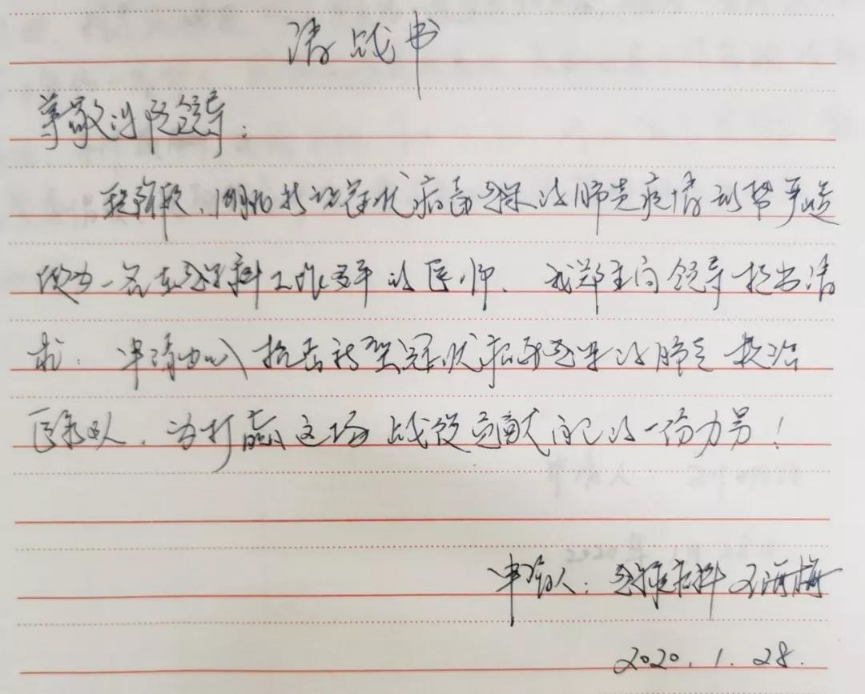 请战书
尊敬的院领导：
现阶段，新型冠状病毒感染的肺炎疫情形势严峻
做为一名在感染科工作多年的医师，我郑重向领导提出请
求：申请加入抗击新型冠状病毒感染的肺炎救治
医疗队，为打赢这场战役贡献自己的一份力量！
申请人：感染科 王海梅
2020.1.28.